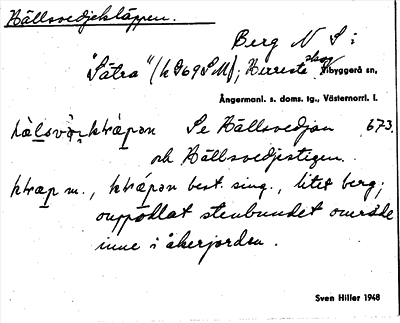 Hällsvedjekläppen.
Berg N S i
"Sätra" (k S69SM); Herrestskog Vibyggerå sn,
Ångermanl. s. doms. tg., Västernorrl. l.
Se Hällsvedjan 673.
och Hällsvedjestigen.
m., best. sing., litet berg;
ouppodlat stenbundet område
inne i åkerjorden.
Sven Hiller 1948